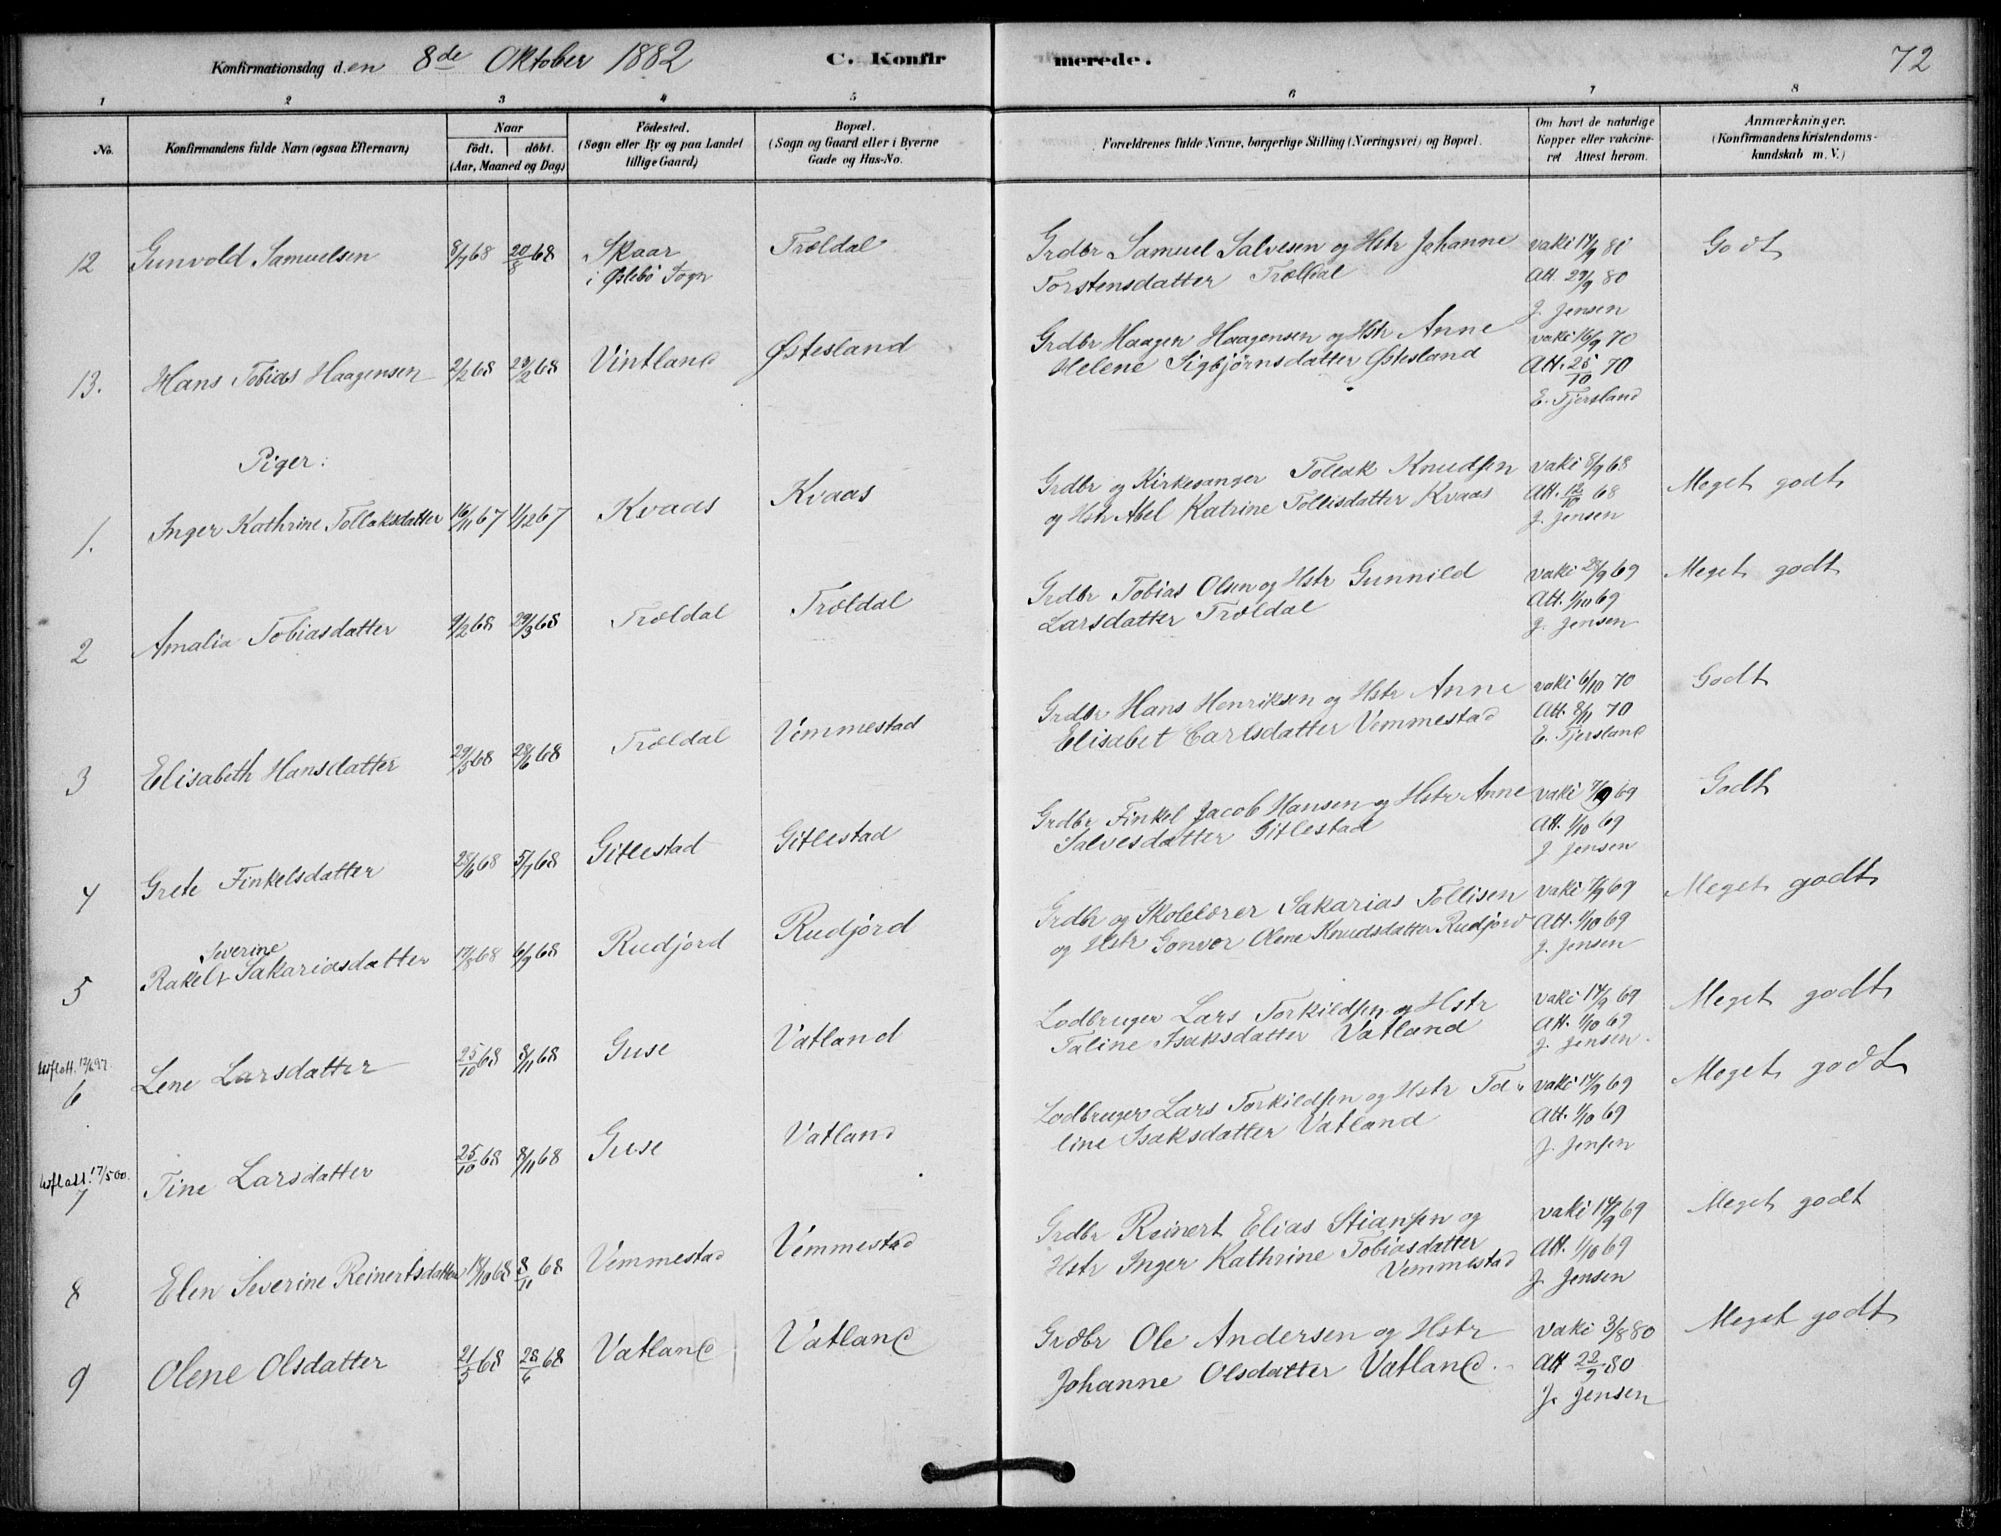 Konfirmationsdag den 8de Oktober 1882 C. Konfirmerede. 72
1 2 3 4 5 6 7 8
No. Konfirmandens fulde Navn (ogsaa Efternavn)
Naar
födt. döbt.
(Aar, Maaned og Dag)
Födested.
(Sogn eller By og paa Landet
tillige Gaard)
Bopæl.
(Sogn og Gaard eller i Byerne
Gade og Hus-No.
Forældrenes fulde Navne, borgerlige Stilling (Næringsvei) og Bopæl.
Om havt de naturlige
Kopper eller vakcine-
ret Attest herom.
Anmærkninger.
(Konfirmandens Kristendoms-
kundskab m. V.)
12 Gunvold Samuelsen 8/7 68 20/8 68 Skaar
i Øslebö Sogn
Trældal
Grdbr Samuel Salvesen og Hstr Johanne
Torstensdatter Trældal
vaki 17/9 80
Att. 29/9 80
J. Jensen
Godt
13. Hans Tobias Haagensen 2/2 68 29/2 68 Vintland Østesland
Grdbr Haagen Haagensen og Hstr Anne
Helene Sigbjörnsdatter Østesland
vaki 16/9 70
Att. 25/10 70
E. Tjersland
Piger:
1. Inger Kathrine Tollaksdatter 16/11 67 1/12 67 Kvaas Kvaas
Grdbr og Kirkesanger Tollak Knudsen
og Hstr Abel Katrine Tollisdatter Kvaas
vaki 8/9 68
Att. 12/10 68
J. Jensen
Meget godt
2 Amalia Tobiasdatter 9/2 68 29/3 68 Trældal Trældal
Grdbr Tobias Olsen og Hstr Gunnild
Larsdatter Trældal
vaki 23/9 69
Att. 1/10 69
J. Jensen
Meget godt
3 Elisabeth Hansdatter 29/5 68 28/6 68 Trældal Vemmestad
Grdbr Hans Henriksen og Hstr Anne
Elisabet Carlsdatter Vemmestad
vaki 6/10 70
Att. 8/11 70
E. Tjersland
Godt
4 Grete Finkelsdatter 25/6 68 5/7 68 Gitlestad Gitlestad
Grdbr Finkel Jacob Hansen og Hstr Anne
Salvesdatter Gitlestad
vaki 7/9 69
Att. 1/10 69
J. Jensen
Godt
5 Rakel Severine Sakariasdatter 17/8 68 6/9 68 Rudjord Rudjörd
Grdbr og Skolelærer Sakarias Tollisen
og Hstr Gonvor Olene Knudsdatter Rudjörd
vaki 7/9 69
Att. 1/10 69
J. Jensen
Meget godt
6 Lene Larsdatter 25/10 68 8/11 68 Guse Vatland
Lodbruger Lars Torkildsen og Hstr
Taline Isaksdatter Vatland
vaki 14/9 69
Att. 1/10 69
J. Jensen.
Meget godt
7 Tine Larsdatter 25/10 68 8/11 68 Guse Vatland
Lodbruger Lars Torkildsen og Hstr Ta-
line Isaksdatter Vatland
vaki 14/9 69
Att. 1/10 69
J. Jensen
Meget godt
8 Elen Severine Reinertsdatter 18/10 68 8/11 68 Vemmestad Vemmestad
Grdbr Reinert Elias Stiansen og
Hstr Inger Kathrine Tobiasdatter
Vemmestad
vaki 14/9 69
Att. 1/10 69
J. Jensen
Meget godt
9 Olene Olsdatter 21/5 68 28/6 68 Vatland Vatland
Grdbr Ole Andersen og Hstr
Johanne Olsdatter Vatland.
vaki 3/8 80
Att 22/9 80
J. Jensen
Meget godt